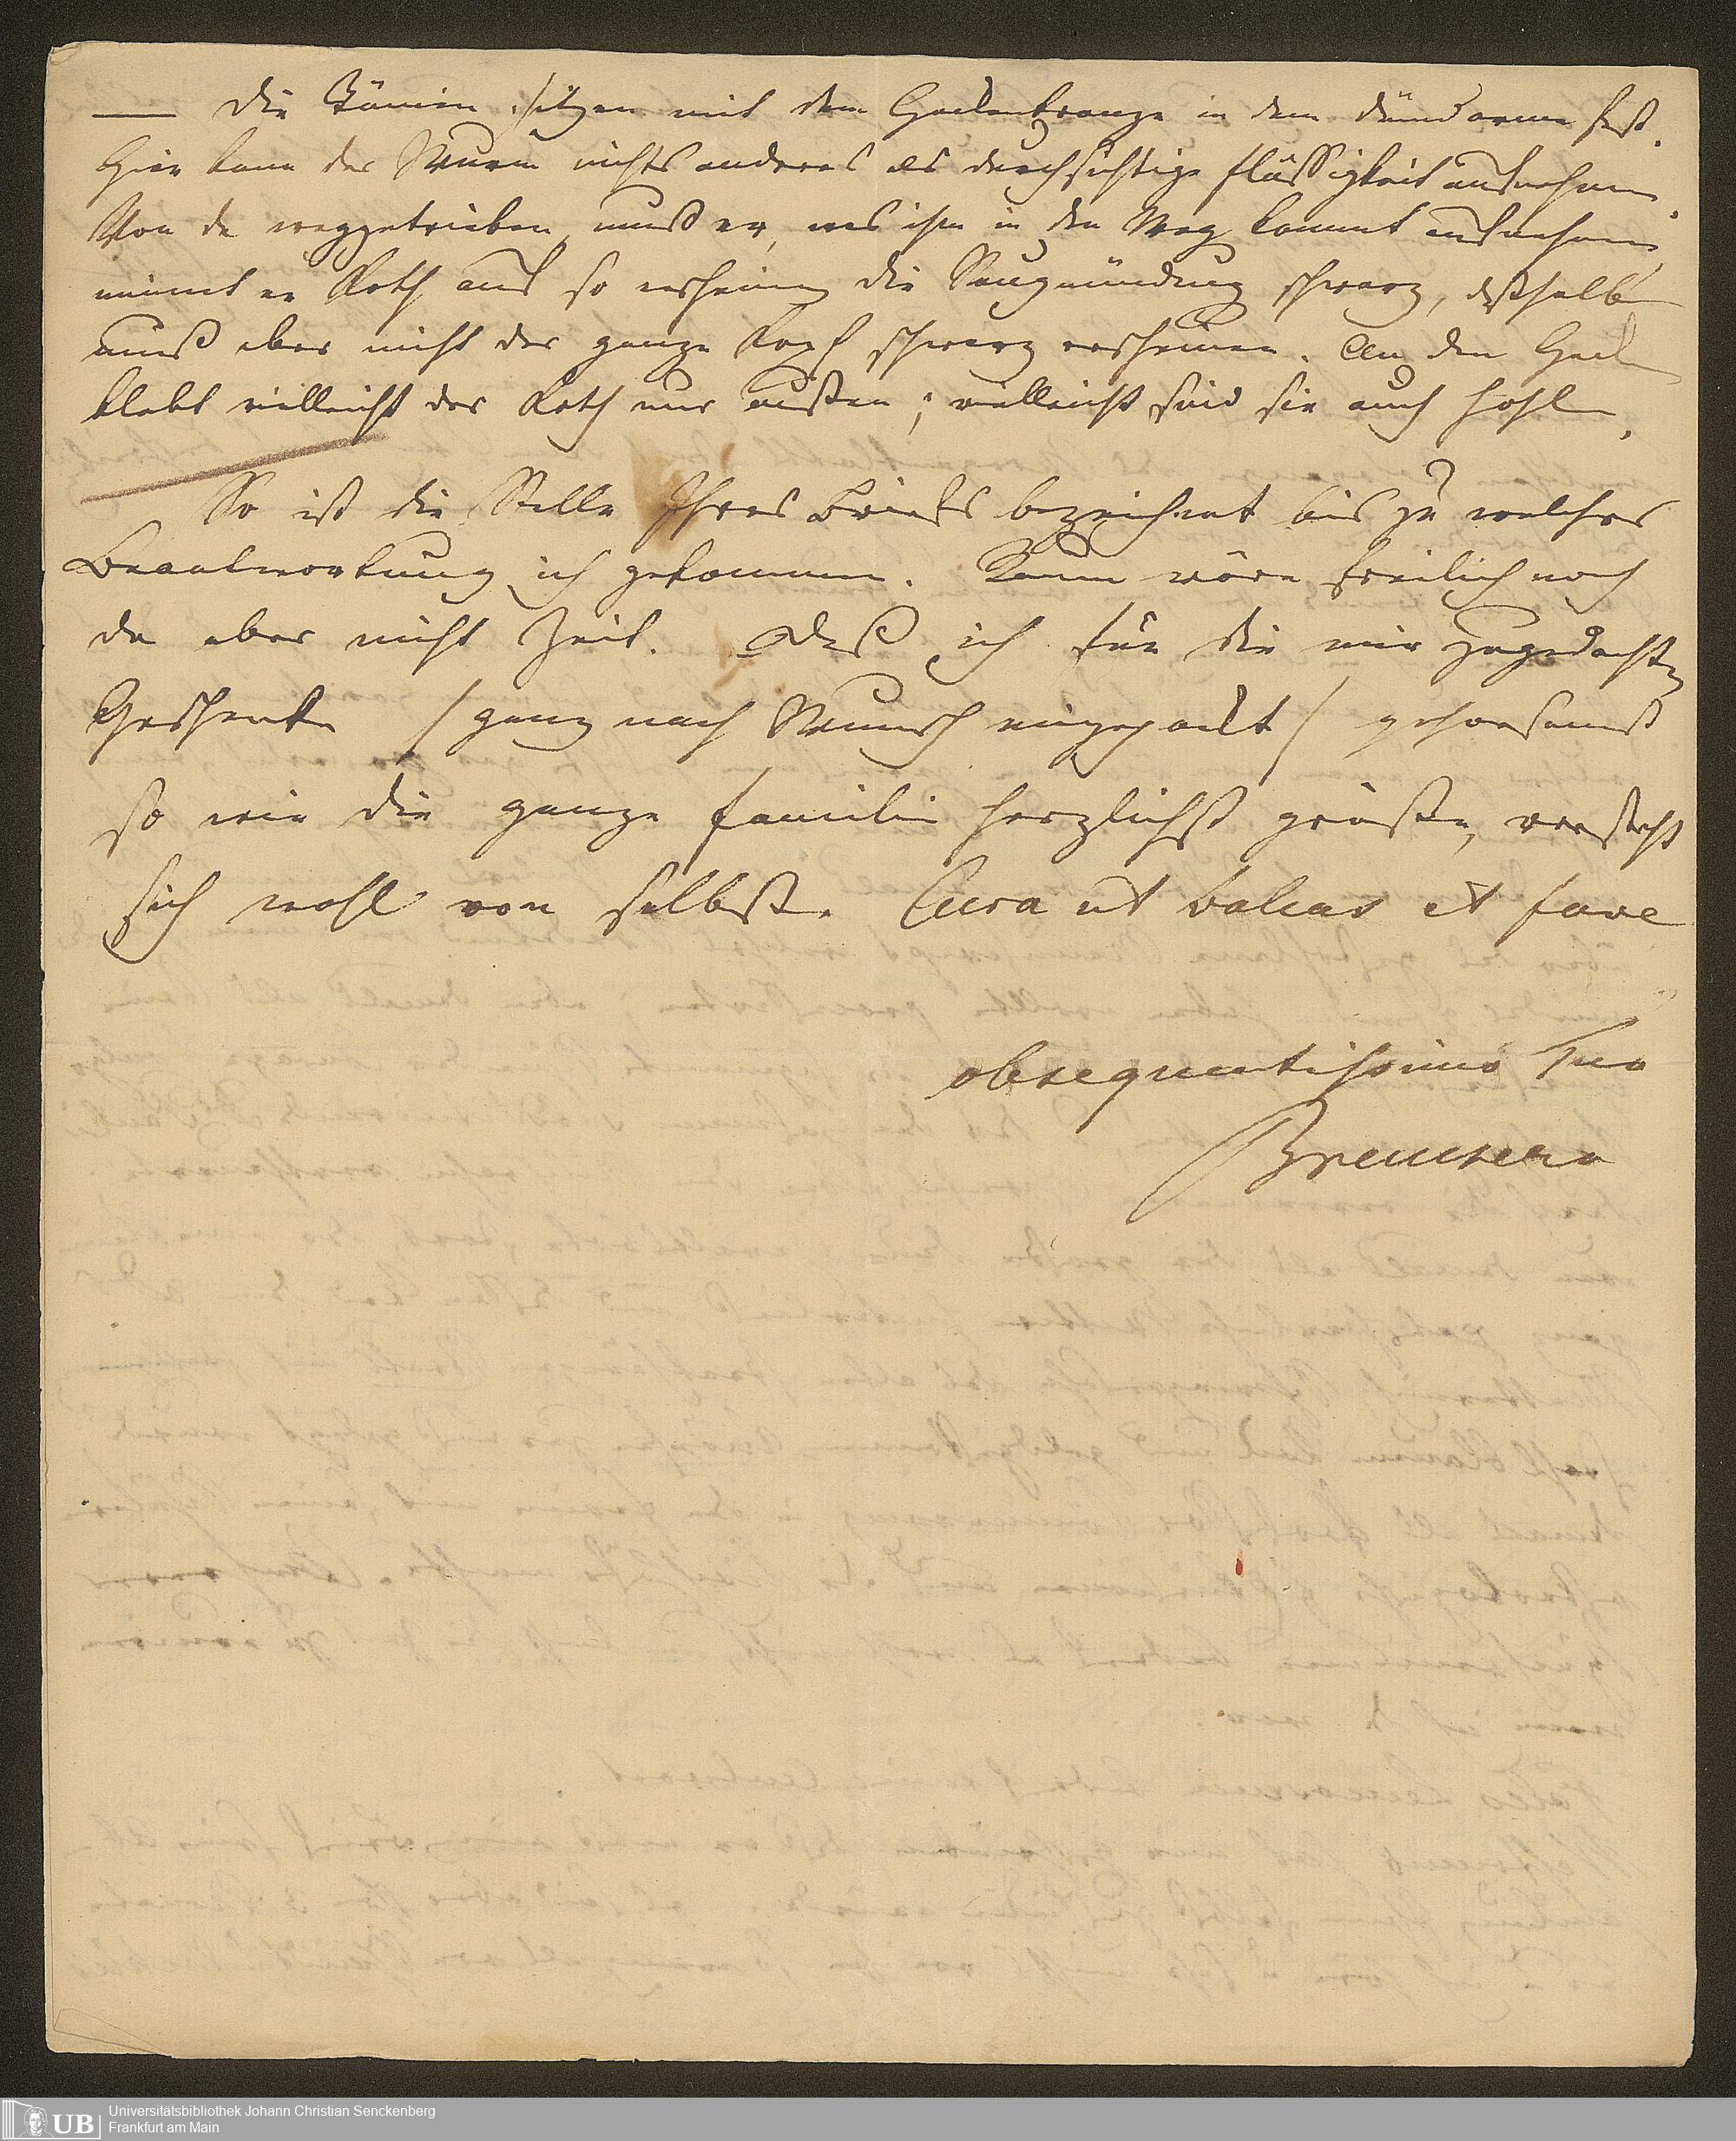 — Die Tänien sitzen mit dem Hackenkranze in dem Dünndarme fest.
Hier kann der Wurm nichts anderes als durchsichtige Flüssigkeit aufnehmen.
Von da weggetrieben, muß er, was ihm in den Weg kommt aufnehmen,
nimmt er Koth auf so erscheinen die Saugmündung schwarz, deßhalb
muß aber nicht der ganze Kopf schwarz erscheinen. An den Hacken
klebt vielleicht der Koth nur außen; vielleicht sind sie auch hohl.
So ist die Stelle Ihres Briefs bezeichnet bis zu welcher
Beantwortung ich gekommen. Raum wäre freilich noch
da aber nicht Zeit. Daß ich für die mir zugedachten
Geschenke /ganz nach Wunsch eingepackt/ gehorsamst
so wie die ganze Familie herzlichst grüße, versteht
sich wohl von selbst. Cura ut valeas et fave
obsequentissimo Tuo
Bremsero
Universitätsbibliothek Johann Christian Senckenberg
Frankfurt am Main
UB